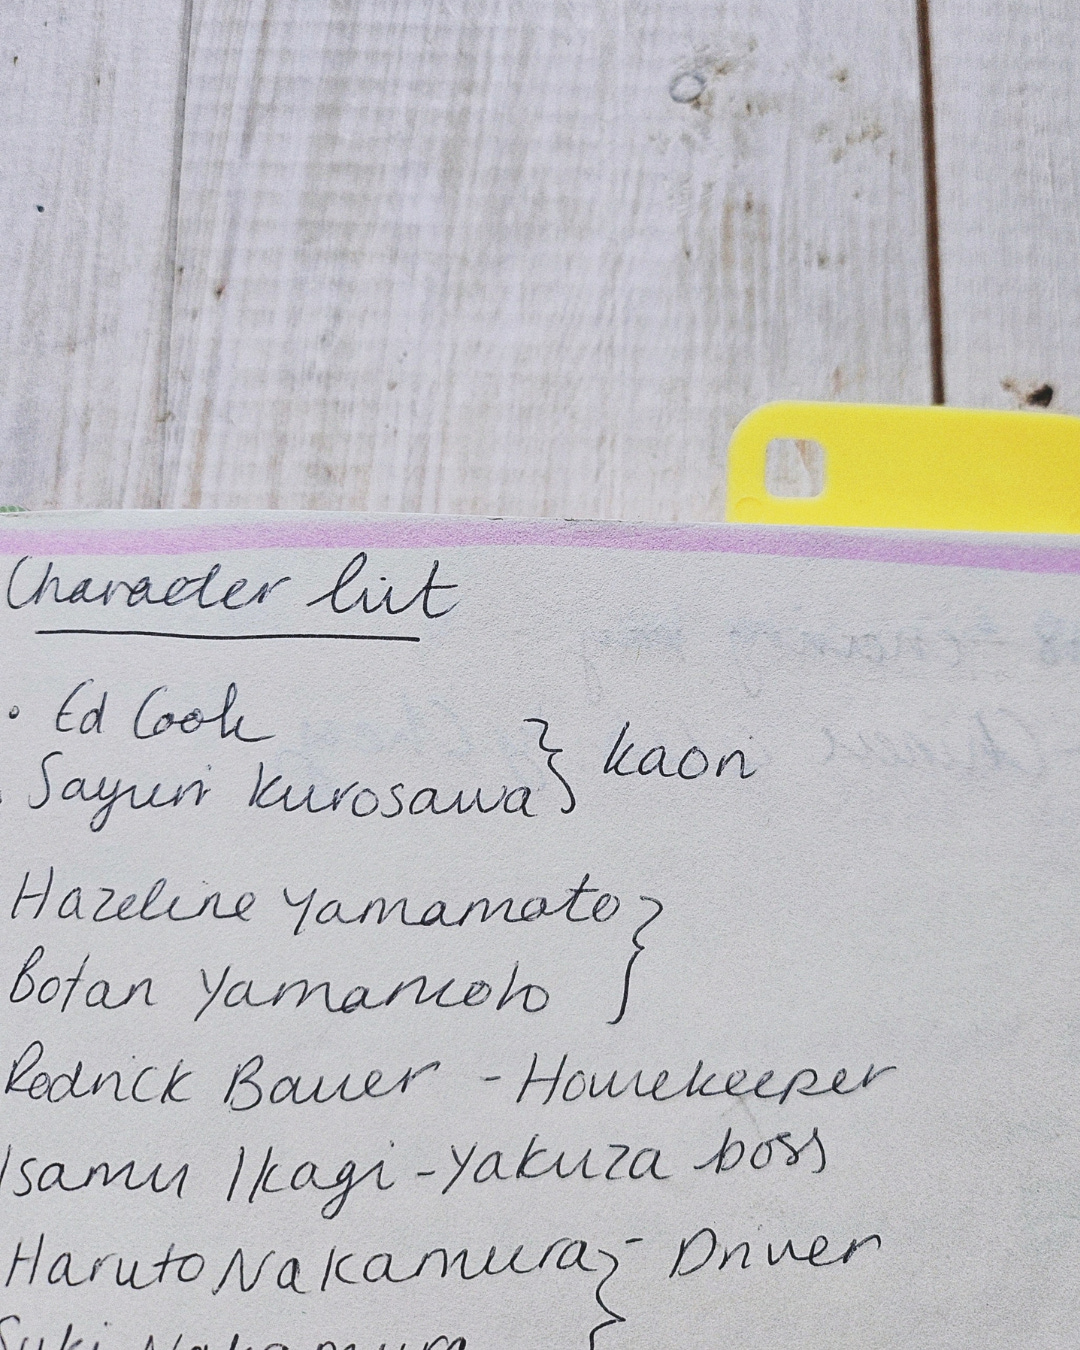 Character list
• Ed Cook
. Sayuri Kurosawa } Kaori
Hazeline Yamamoto
Botan Yamamoto }
Rodrick Bauer - Housekeeper
Isamu Ikagi - Yakuza boss
Haruto Nakamura } - Driver
Suki Nakamura